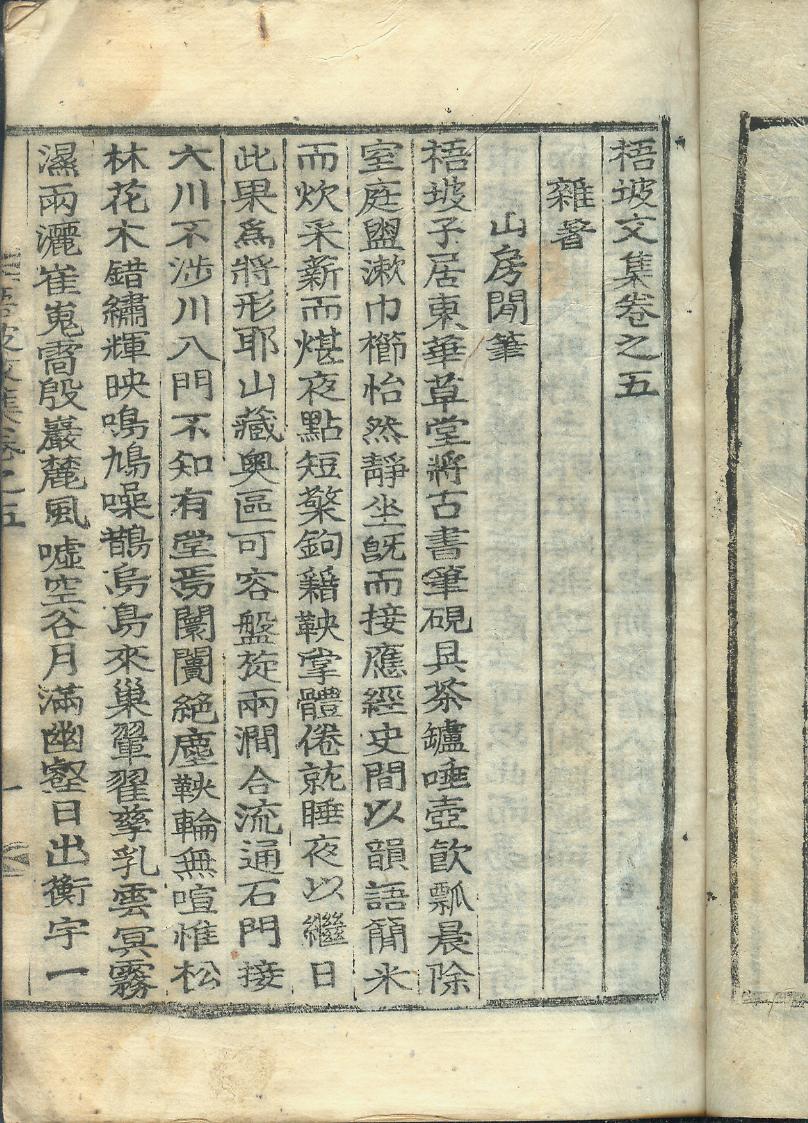 梧坡文集卷之五
雜著
山房閒筆
梧坡子居東華草堂將古書筆硯具茶罏唾壺飮瓢晨除
室庭盥漱巾櫛怡然靜坐旣而接應經史間以韻語簡米
而炊采薪而煁夜點短檠鉤籍鞅掌體倦就睡夜以繼日
此果爲將形耶山藏奧區可容盤旋兩澗合流通石門接
大川不涉川入門不知有堂焉闤闠絶塵鞅輪無喧惟松
林花木錯繡輝映鳴鳩噪鵲烏鳥來巢翬翟孳乳雲冥霧
濕雨灑崔嵬雷殷巖麓風噓空谷月滿幽壑日出衡宇一
梧坡文集卷之五 一